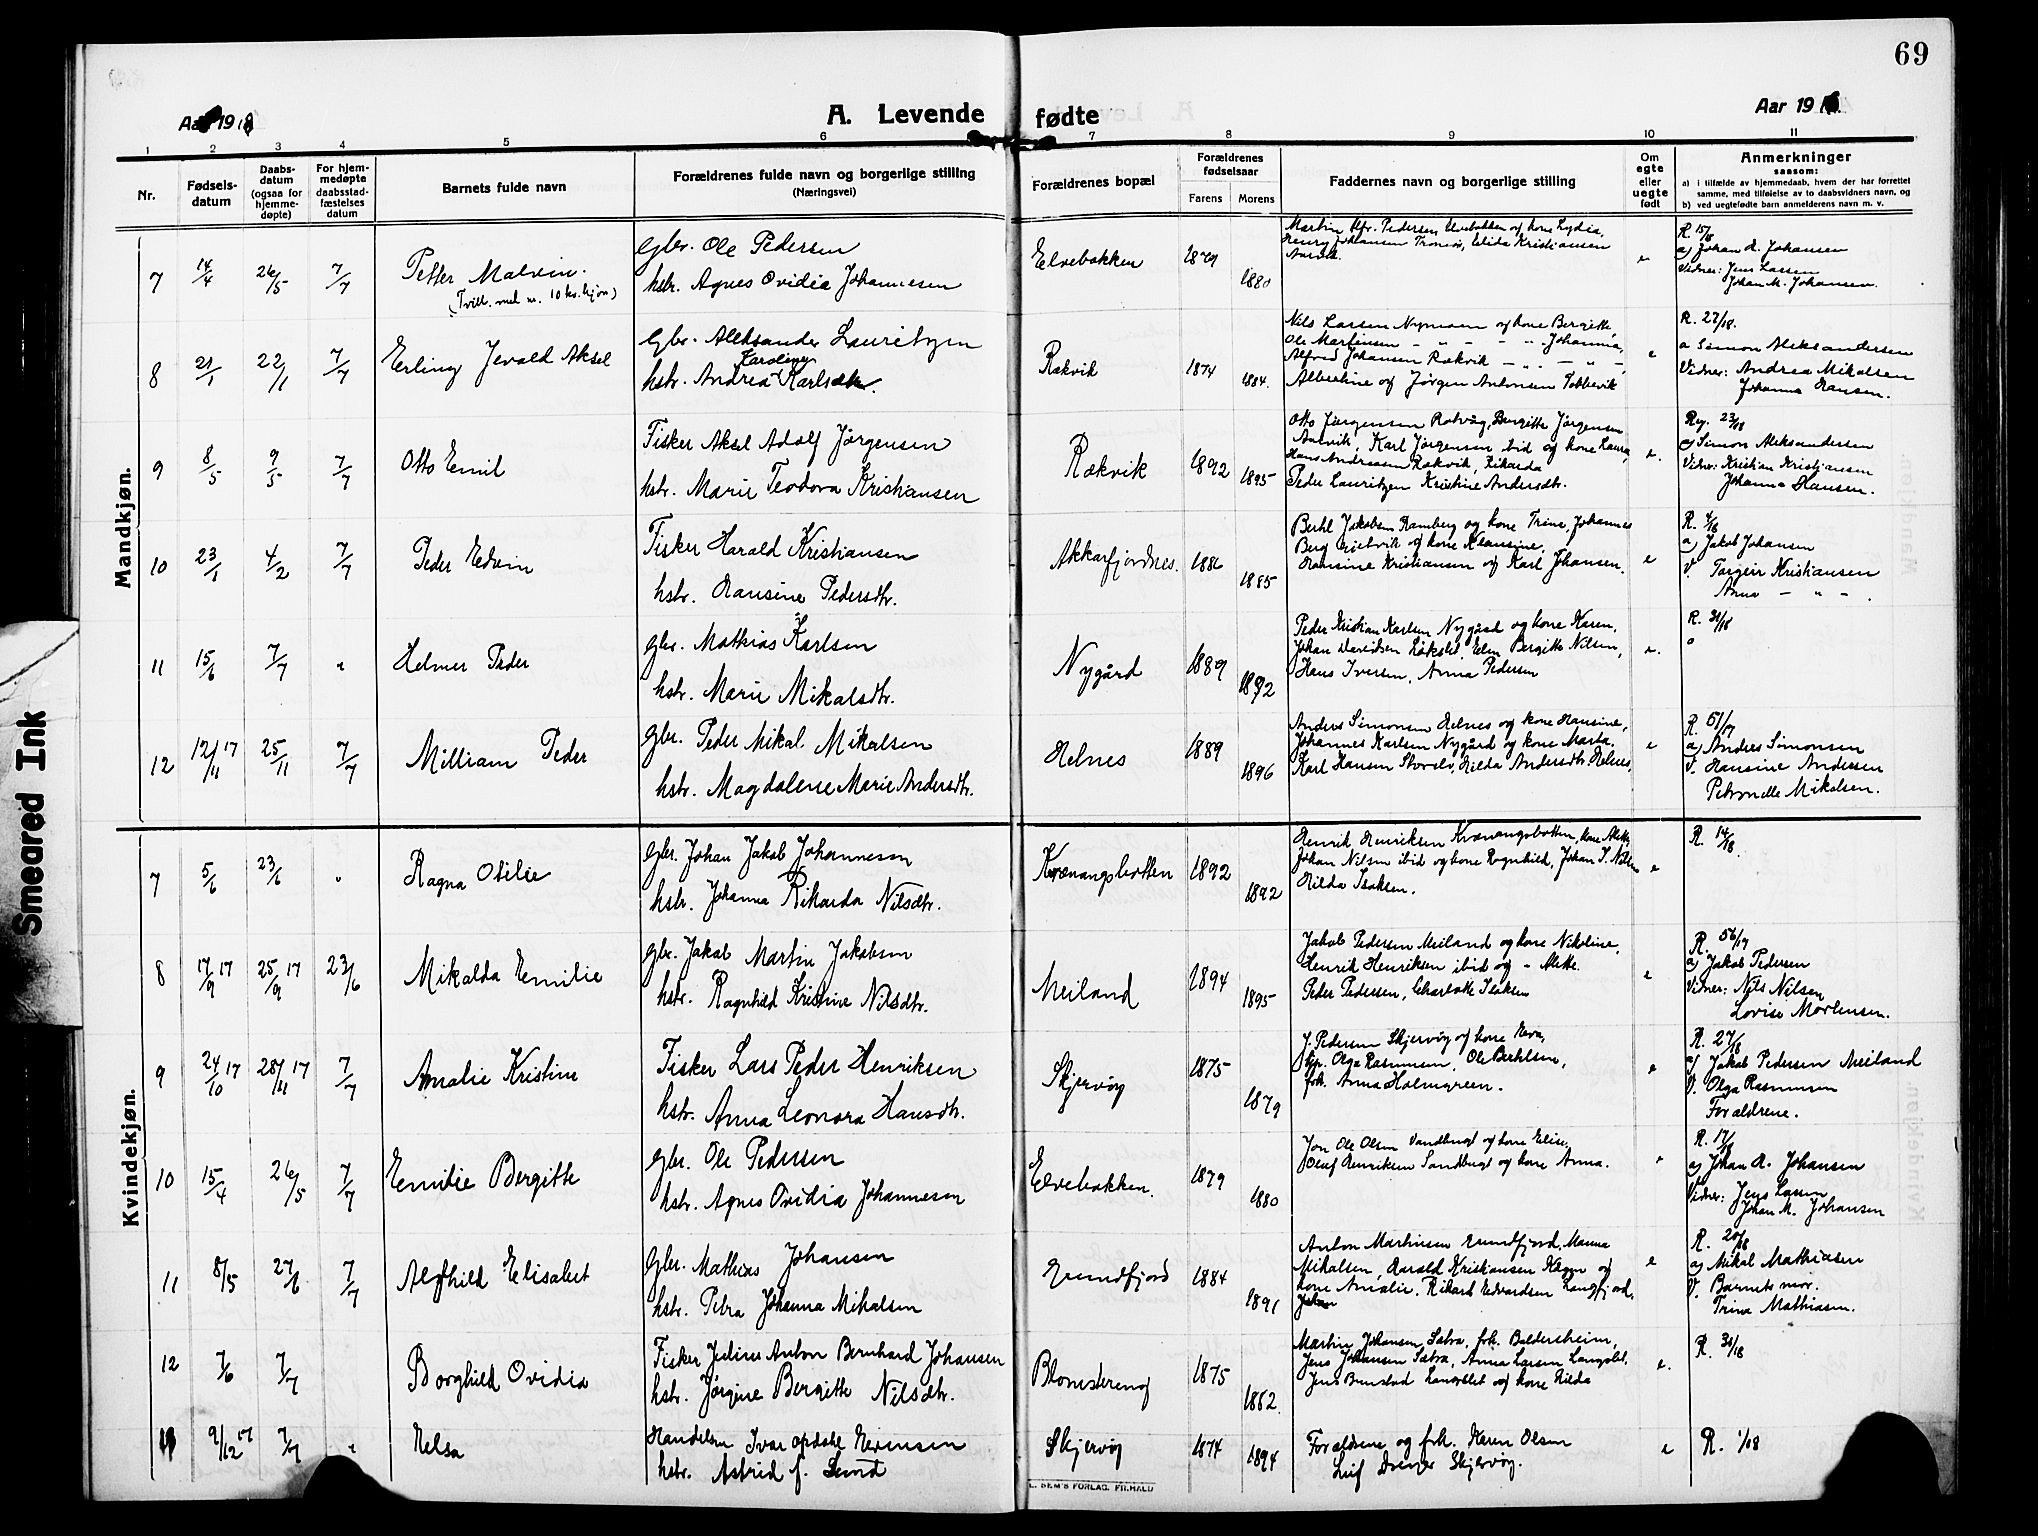 69
Aar 1918
A. Levende fødte
Aar 191
1 2 3 4 5 6 7 8 9 10 11
Nr.
Fødsels-datum
Daabs-datum (ogsaa for hjemme-døpte)
For hjem-medøpte daabsstad-fæstelses datum
Barnets fulde navn
Forældrenes fulde navn og borgerlige stilling
(Næringsvei)
Forældrenes bopæl
Forældrenes fødselsaar
Farens Morens
Faddernes navn og borgerlige stilling
Om egte eller uegte født
Anmerkninger
saasom:
a) i tilfælde av hjemmedaab, hvem der har forrettet samme, med tilføielse av to daabsvidners navn, og
b) ved uegtefødte barn anmelderens navn m. v.
Mandkjøn.
7 14/4 26/5 7/7 Petter Malvin. gbr. Ole Pedersen Elvebakken 1879 e R. 15/8
(Tvill. med n. 10 kv.kjøn) hstr. Agnes Ovidia Johannesen 1880
a) Johan A. Johansen
Vidner: Jens Larsen
Johan M. Johansen.
8 21/1 22/1 7/7 Erling Jevald Aksel gbr. Aleksander Lauritzen Rakvik 1874 e R. 27/18.
Karoline
hstr. Andrea Karlsdtr. 1884.
Nils Larsen Nymoen og kone Bergitte,
Ole Martinsen - " - " - " Johanna,
Alfred Johansen Rakvik
Albertine og Jørgen Antonsen
a Simon Aleksandersen
Vidner: Andrea Mikalsen
Johanna Hansen.
9 8/5 9/5 7/7 Otto Emil Fisker Aksel Adolf Jørgensen Rakvik 1892 e. Reg. 23/18
hstr. Marie Teodora Kristiansen 1895
Otto Jørgensen Rotvåg, Bergitte Jørgensen
Karl Jørgensen ibid og kone Laura,
Hans Andreassen Rakvik, Rikarda
Peder Lauritzen Kristine Andersdtr.
a) Simon Aleksandersen
Vidner: Kristian Kristiansen
Johanna Hansen.
10 23/1 4/2 7/7 Peder Edvin Fisker Harald Kristiansen Akkarfjordnes. 1886 e R. 4/18
hstr. Hansine Pedersdtr. 1885
Bertel Jakobsen Ramberg og kone Trine, Johannes
Berg og kone Klausine,
Hansine Kristiansen og Karl Johansen.
a) Jakob Johansen
V. Torgeir Kristiansen
Anna - " - .
11 15/6 7/7 " Helmer Peder gbr. Mathias Karlsen Nygård 1889 e. R. 31/18
hstr. Marie Mikalsdtr. 1892
Peder Kristian Karlsen Nygård og kone Karen,
Johan Davidsen Løkslet, Elen Bergitte Nilsen,
Hans Iversen, Anna Pedersen
12 12/11 17 25/11 7/7 Milliam Peder gbr. Peder Mikal Mikalsen Helnes 1889 e R. 61/17
hstr. Magdalene Marie Andersdtr. 1896
Anders Simonsen Helnes og kone Hansine,
Johannes Karlsen Nygård og kone Marta,
Karl Hansen Storslv, Hilda Andersdtr Helnes,
a) Andres Simonsen
V. Hansine Andersen
Petronelle Mikalsen.
Kvindekjøn.
7 5/6 23/6 " Ragna Otilie gbr. Johan Jakob Johannesen Kvænangsbotten 1892 e R. 14/18.
hstr. Johanna Rikarda Nilsdtr. 1892
Henrik Henriksen Kvænangsbotten, kone Alette
Johan Nilsen ibid og kone Ragnhild, Johan I. Nilsen
Hilda Isaksen.
8 17/9 17 25/9 17 23/6 Mikalda Emilie gbr. Jakob Martin Jakobsen Meiland 1894 e R. 56/17
hstr. Ragnhild Kristine Nilsdtr. 1895
Jakob Pedersen Meiland og kone Nikoline,
Henrik Henriksen ibid og - Alette.
Peder Pedersen, Charlotte Isaksen
a) Jakob Pedersen
Vidner: Nils Nilsen
Lovise Mortensen.
9 24/10 17 28/11 17 7/7 Amalie Kristine Fisker Lars Peder Henriksen Skjervøy 1875 e R. 27/18
hstr. Anna Leonora Hansdtr. 1879
J. Pedersen Skjervøy og kone Eva,
Olga Rasmussen, Ole Bertelsen,
frk. Anna Holmgreen.
a) Jakob Pedersen Meiland
V. Olga Rasmussen
Forældrene.
10 15/4 26/5 7/7 Emilie Bergitte gbr. Ole Pedersen Elvebakken. 1879 R. 17/18
hstr. Agnes Ovidia Johannesen 1880
Jon Ole Olsen Sandbugt og kone Elise,
Oluf Henriksen Sandbugt og kone Anna.
a) Johan A. Johansen
Vidner: Jens Larsen
Johan M. Johansen
11 8/5 27/6 7/7 Alfhild Elisabet gbr. Mathias Johansen Grundfjord 1884 e R. 20/18
hstr. Petra Johanna Mikalsen 1891
Anton Martinsen Grundfjord, Manna
Mikalsen, Harald Kristiansen Hagen og
kone Amalie. Rikard Edvardsen Langfjord.
a) Mikal Mathiasen
V. Barnets mor.
Trine Mathiasen.
12 7/6 7/7 Borghild Ovidia Fisker Julius Anton Bernhard Johansen Blomstereng 1875 e. R. 30/18
hstr. Jørgine Bergitte Nilsdtr. 1882
Martin Johansen Sætra, frk. Baldersheim,
Jens Johansen Sætra, Anna Larsen Langslet,
Jens Benstad Langslet og kone Hilda
9/12 17 7/7 " Elsa Handelsm Ivar Opdahl Evensen Skjervøy 1874 1894 e R. 1/18
hstr. Astrid f. Lund
Forældrene og frk. Karen Olsen
Leif Dreyer Skjervøy.
E. SEM'S FORLAG. FR.HALD
Smeared Ink